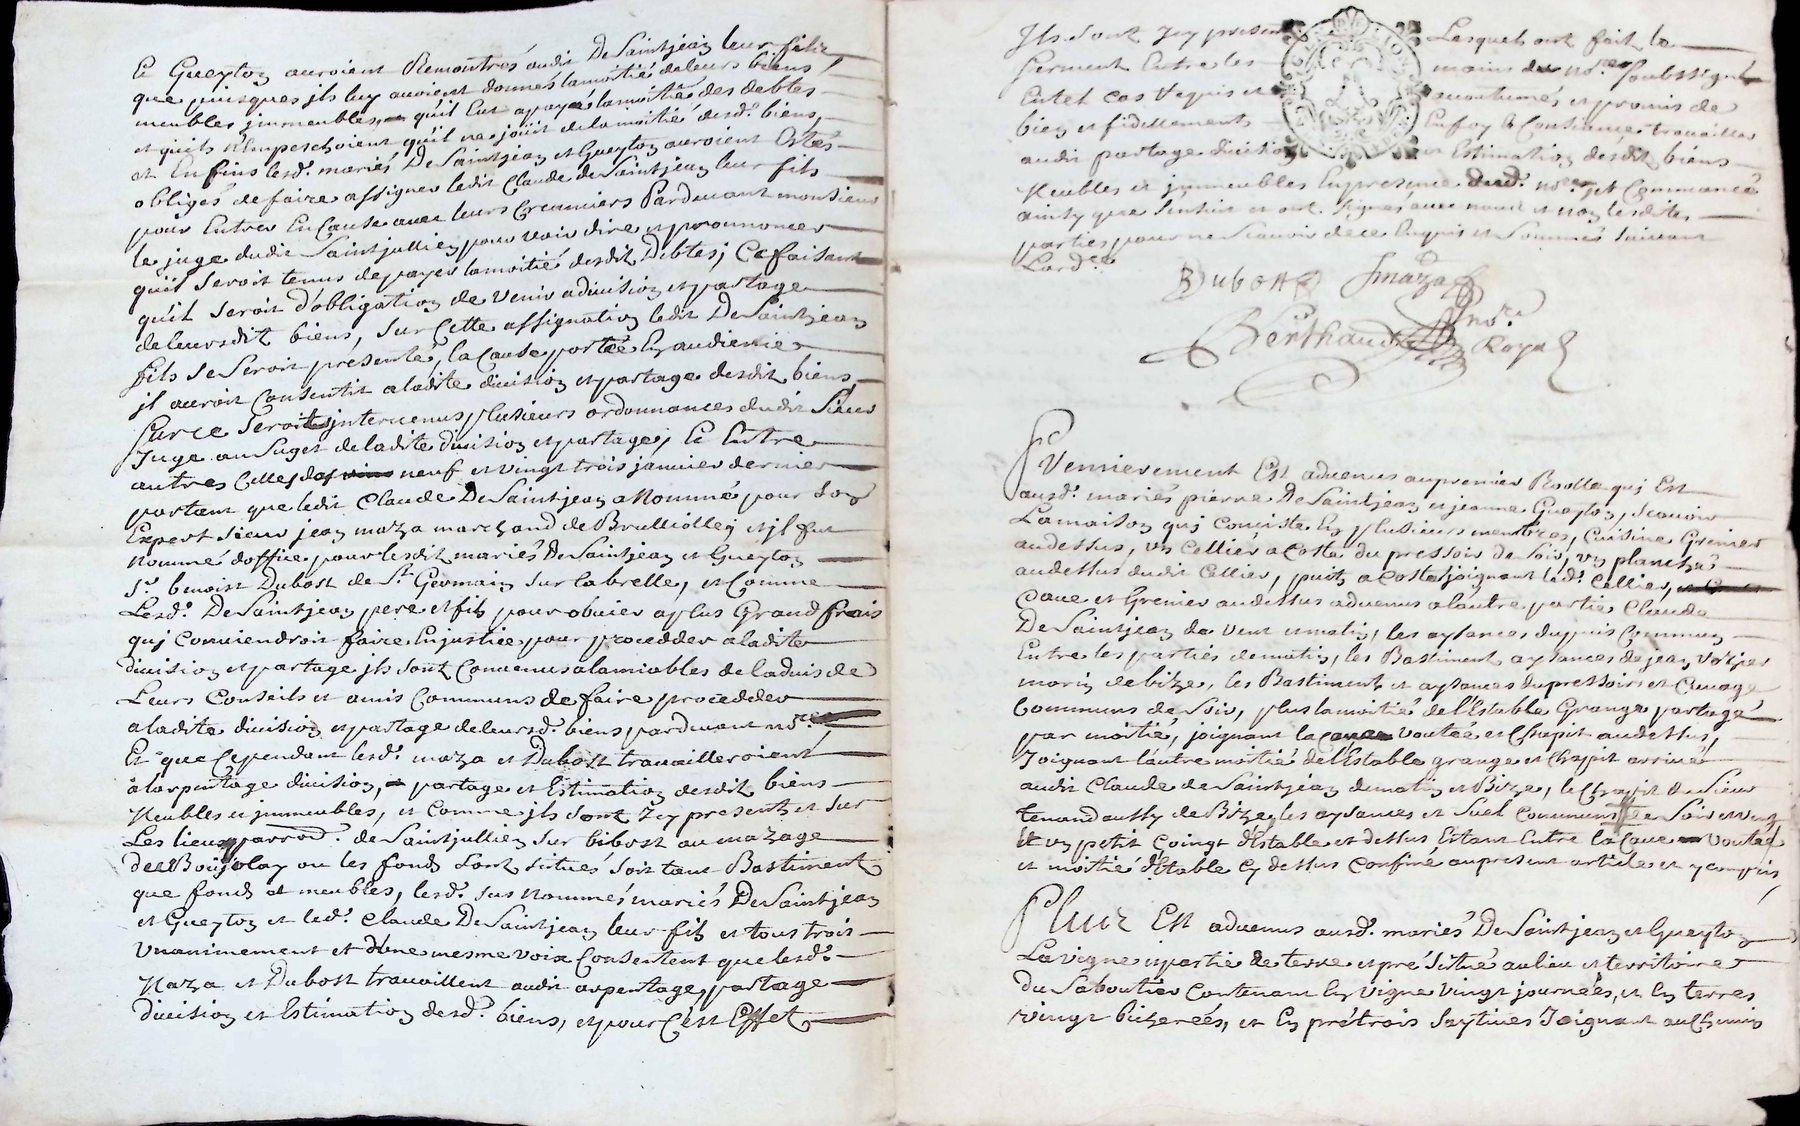 Et Gueyton auroient Remontrés audit De Saintjean leur fils
que puisques jls luy auoient donnés la moitié de leurs biens
meubles jmmeubles, qu'il Eut a payer la moitié des debtes
et qu'ils N'Empeschoient qu'il ne joüit de la moitié desd. biens,
et Enfins lesd. mariés De Saintjean et Gueyton auroient Estés
obligés de faire assigner ledit Claude de Saintjean leur fils
pour Entrer En Cause auec leurs Creanciers Parduant monsieur
le juge dudit Saintjullien pour voir dire et prononcer
qu'il seroit tenus de payer la moitié desdit Debtes, Ce faisant
qu'il seroit d'obligation de venir a diuision et partage
de leursdit biens, sur Cette assignation ledit De Saintjean
fils se seroit presenté, la Cause portée En audience
jl auroit Consentit a ladite diuision et partage desdit biens,
sur ce seroit jnteruenus plusieurs ordonnances dudit Sieur
Juge au Suget de ladite diuision et partage, Et Entre
autres Celles des neuf et vingt trois januier dernier
portant que ledit Claude De Saintjean a Nommé pour son
Expert sieur jean maza marchand de Brulliolles, et jl fut
nommé d'office pour lesdit mariés De Saintjean et Gueyton
Sr. benoist Dubost de St. Germain sur labrelle, et Comme
Lesd. De Saintjean pere et fils pour obuier a plus Grand frais
quj Conuiendroit faire En justice pour procedder a ladite
diuision et partage jls sont Conuenus a lamiables de laduis de
Leurs Conseils et amis Communs de faire procedder
a ladite diuision et partage de leursd. biens parduant nore.
Et que Cependant lesd. maza et Dubost trauailleroient
à larpentage diuision, partage et Estimation desdit biens
Meubles et jmmeubles, et Comme jls sont Jcy presents et sur
Les lieux parroa. de Saintjullien sur bibost au mazage
de Boujolay ou les fonds sont situés soit tant Bastiment
que fonds et meubles, lesd. sus Nommés mariés De Saintjean
et Gueyton et led. Claude De Saintjean leur fils et tous trois
Vnanimement et d'une mesme voix Consentent que lesd.
Maza et Dubost trauaillent audit arpentage, partage
diuision et Estimation desd. biens, et pour C'est Effet
Jls sont Jcy presents Lesquels ont fait le
serment Entre les mains du nore. soubssigné
En tel cas requis et accoutumés et promis de
bien et fidellement En foy & Consience trauailler
audit partage diuision et Estimation desdit biens
Meubles et jmmeubles En presence dud. nore. et Commancé
ainsy que s'ensuit et ont signés auec nous et non lesdites
parties pour ne scauoir de ce Enquis et sommés suiuant
Lord.ce
Dubost Jmaza
Berthaud nore. Royal
Premierement Est aduenus au premier Roolle quj Est
ausd. mariés pierre De Saintjean et jeanne Gueyton, scauoir
La maison quj Consiste En plusieurs membres, Cuisine Grenier
audessus, vn Cellier a Coste du pressoir de soir, vn planché
audessus dudit Cellier, puits a Coste joignant led. Cellier,
Caue et Grenier audessus aduenus a lautre partie Claude
De Saintjean de vent et matin, les aysances du puis Commun
Entre les parties de matin, les Bastiment aysances de jean Voisier
marin de bize, les Bastiments et aysances du pressoir et Cuuage
Communs de soir, plus la moitié de l'Estable Grange partagé
par moitié, joignant la Caue voutée et Chapit audessus,
Joignant l'autre moitié de l'Estable grange et Chapit arriué
audit Claude de Saintjean de matin et Bize, le Chapit dusieur
tenand aussy de Bize les aysances et suel Communs de soir et vent
Et vn petit Coingt d'Estable et dessus Estant Entre la Caue voutée
et moitié d'Etable Cy dessus Confiné au present article et y compris
Plus Est aduenus ausd. mariés De Saintjean et Gueyton
La vigne et partie de terre et pré situé au lieu et territoire
du Saboutier Contenant En vigne vingt journées, et En terres
vingt bicherées, et En pré trois seytiues Joignant au Chemin